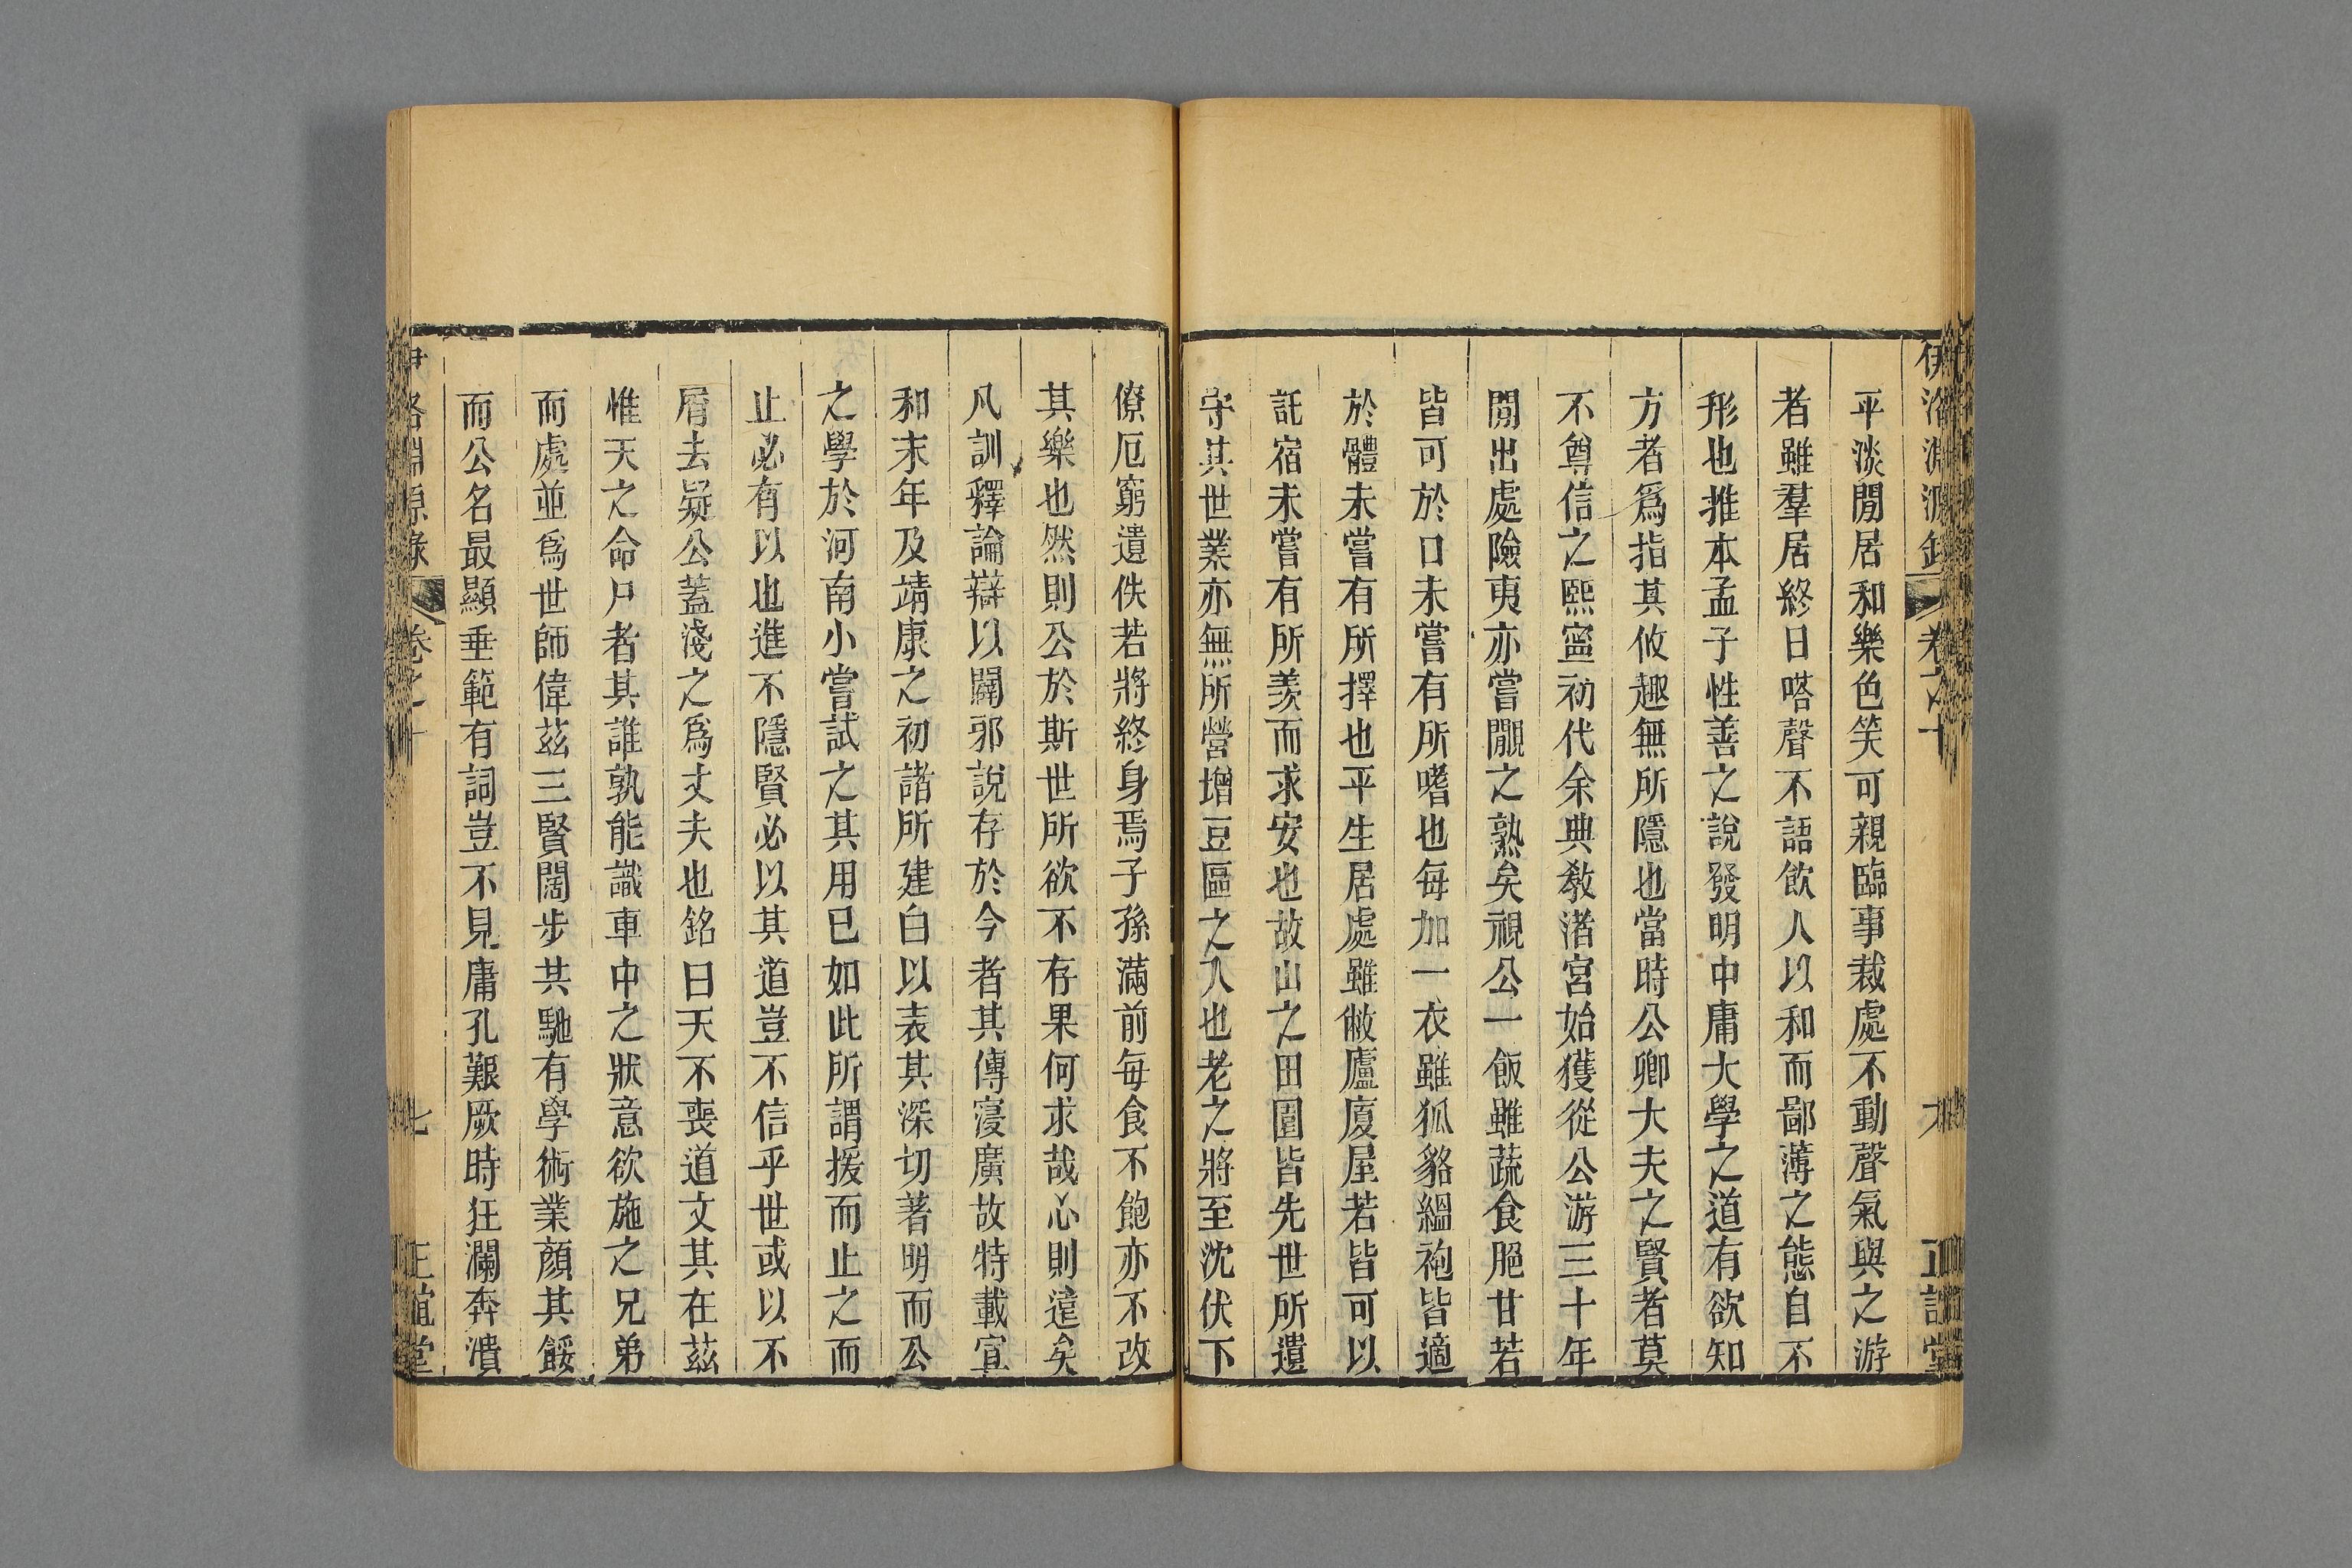 伊洛淵源錄 卷之十 六 正誼堂
平淡閒居和樂色笑可親臨事裁處不動聲氣與之游
者雖羣居終日嗒聲不語飲人以和而鄙薄之態自不
形也推本孟子性善之說發明中庸大學之道有欲知
方者爲指其攸趣無所隱也當時公卿大夫之賢者莫
不尊信之熙寧初代余典教渚宮始獲從公游三十年
閒出處險夷亦嘗覵之熟矣視公一飯雖蔬食脃甘若
皆可於口未嘗有所嗜也每加一衣雖狐貉縕袍皆適
於體未嘗有所擇也平生居處雖敝廬廈屋若皆可以
託宿未嘗有所羨而求安也故山之田園皆先世所遺
守其世業亦無所營增豆區之入也老之將至沈伏下
僚厄窮遺佚若將終身焉子孫滿前每食不飽亦不改
其樂也然則公於斯世所欲不存果何求哉心則遠矣
凡訓釋論辯以闢邪說存於今者其傳寖廣故特載宣
和末年及靖康之初諸所建白以表其深切著明而公
之學於河南小嘗試之其用已如此所謂援而止之而
止必有以也進不隱賢必以其道豈不信乎世或以不
屑去疑公蓋淺之爲丈夫也銘曰天不喪道文其在茲
惟天之命尸者其誰孰能識車中之狀意欲施之兄弟
而處並爲世師偉茲三賢闊步共馳有學術業顏其餒
而公名最顯垂範有詞豈不見庸孔艱厥時狂瀾奔潰
伊洛淵源錄 卷之十 七 正誼堂